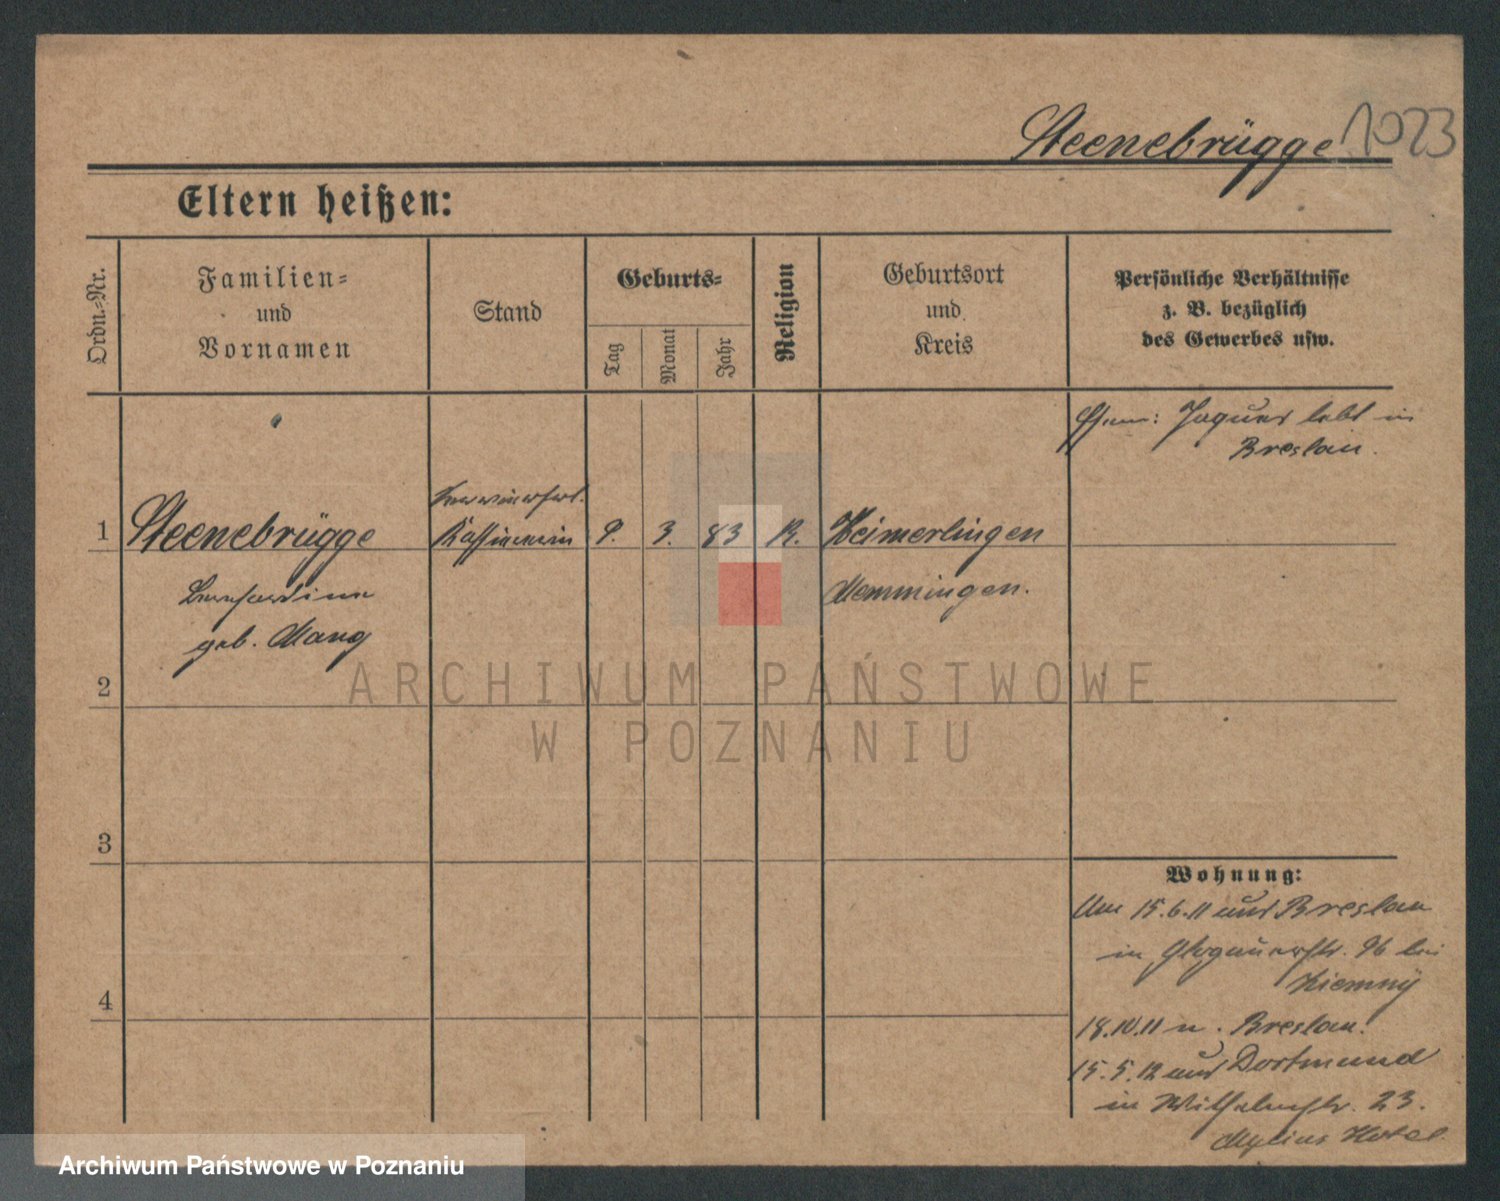 Steenebrügge 1023
Eltern heißen:
Ordn.-Nr.
Familien-
und
Vornamen
Stand
Geburts-
Tag
Monat
Jahr
Religion
Geburtsort
und
Kreis
Persönliche Verhältnisse
z. B. bezüglich
des Gewerbes usw.
lebt in
Breslau.
1 Steenebrügge Kassiererin 9. 3. 83 R. Heimerlingen
Memmingen.
geb. Mang
2
ARCHIWUM PAŃSTWOWE
W POZNANIU
3
4
Wohnung:
Am 15.6.11 aus Breslau
in Glogauerstr. 96 bei
Ziemny
18.10.11 n. Breslau.
15.5.12 aus Dortmund
in Wilhelmstr. 23.
Mylius Hotel
Archiwum Państwowe w Poznaniu